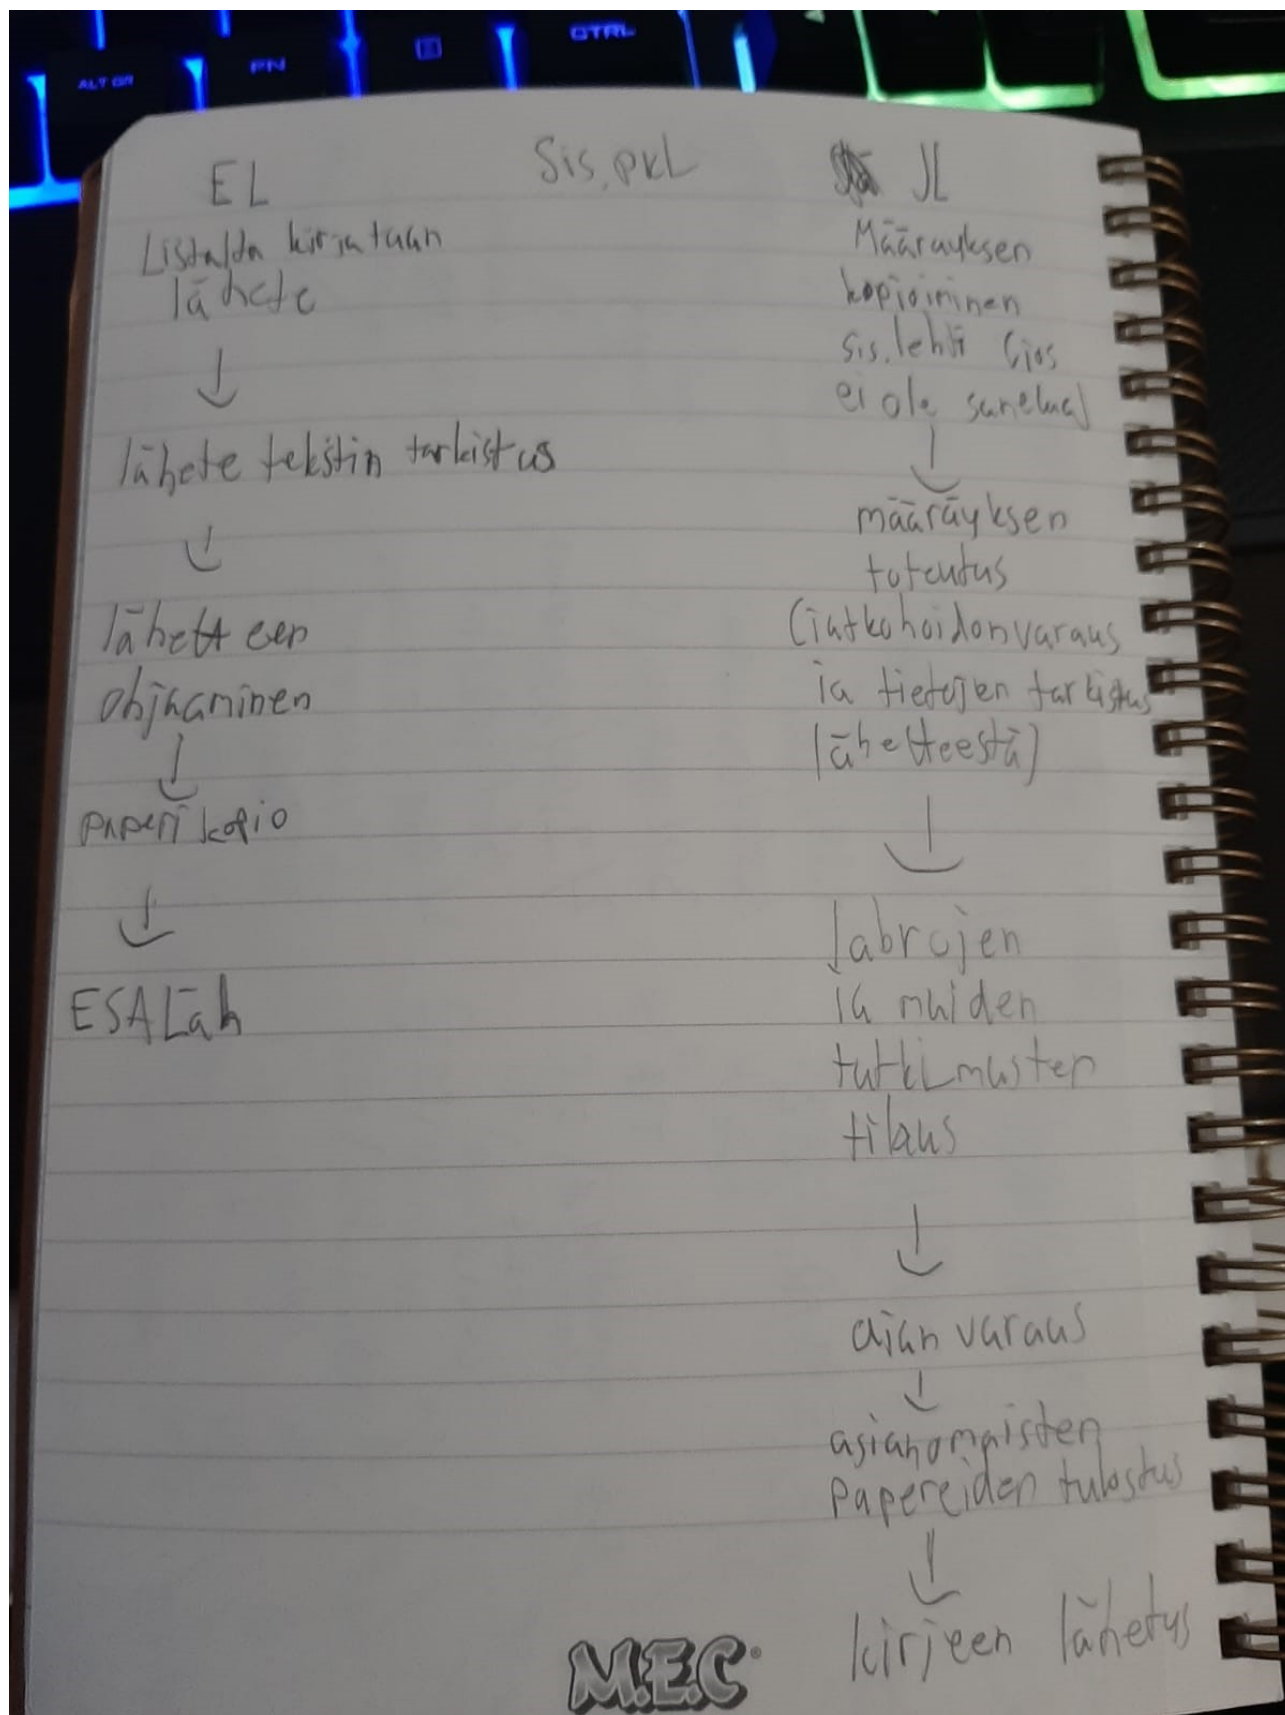 ALT GR
FN
CTRL
Sis.pkl
EL
Listalta kirjataan
lähete
lähete tekstin tarkistus
lähetteen
ohjaaminen
paperi kopio
ESALäh
JL
Määräyksen
kopioiminen
sis.lehti (jos
ei ole sanelua)
määräyksen
toteutus
(jatkohoidonvaraus
ja tietojen tarkistus
lähetteestä)
labrojen
ja muiden
tutkimusten
tilaus
ajan varaus
asianomaisten
papereiden tulostus
kirjeen lähetys
M.E.C